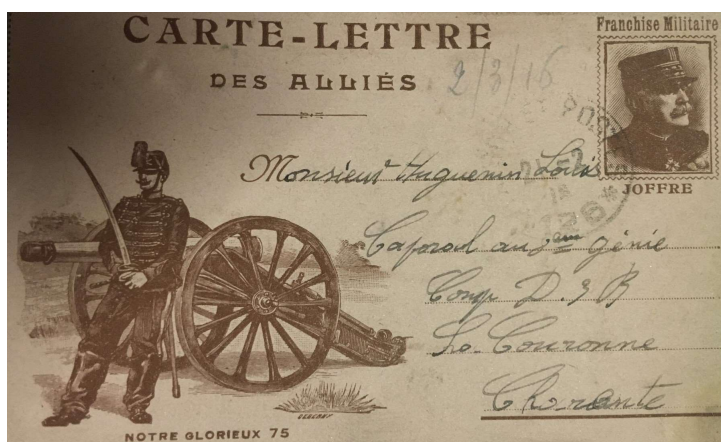 CARTE-LETTRE
DES ALLIÉS
Franchise Militaire
2/3/16
JOFFRE
Monsieur Huguenin Louis
Caporal au eme génie
Comp D.
La Couronne
Charente
NOTRE GLORIEUX 75